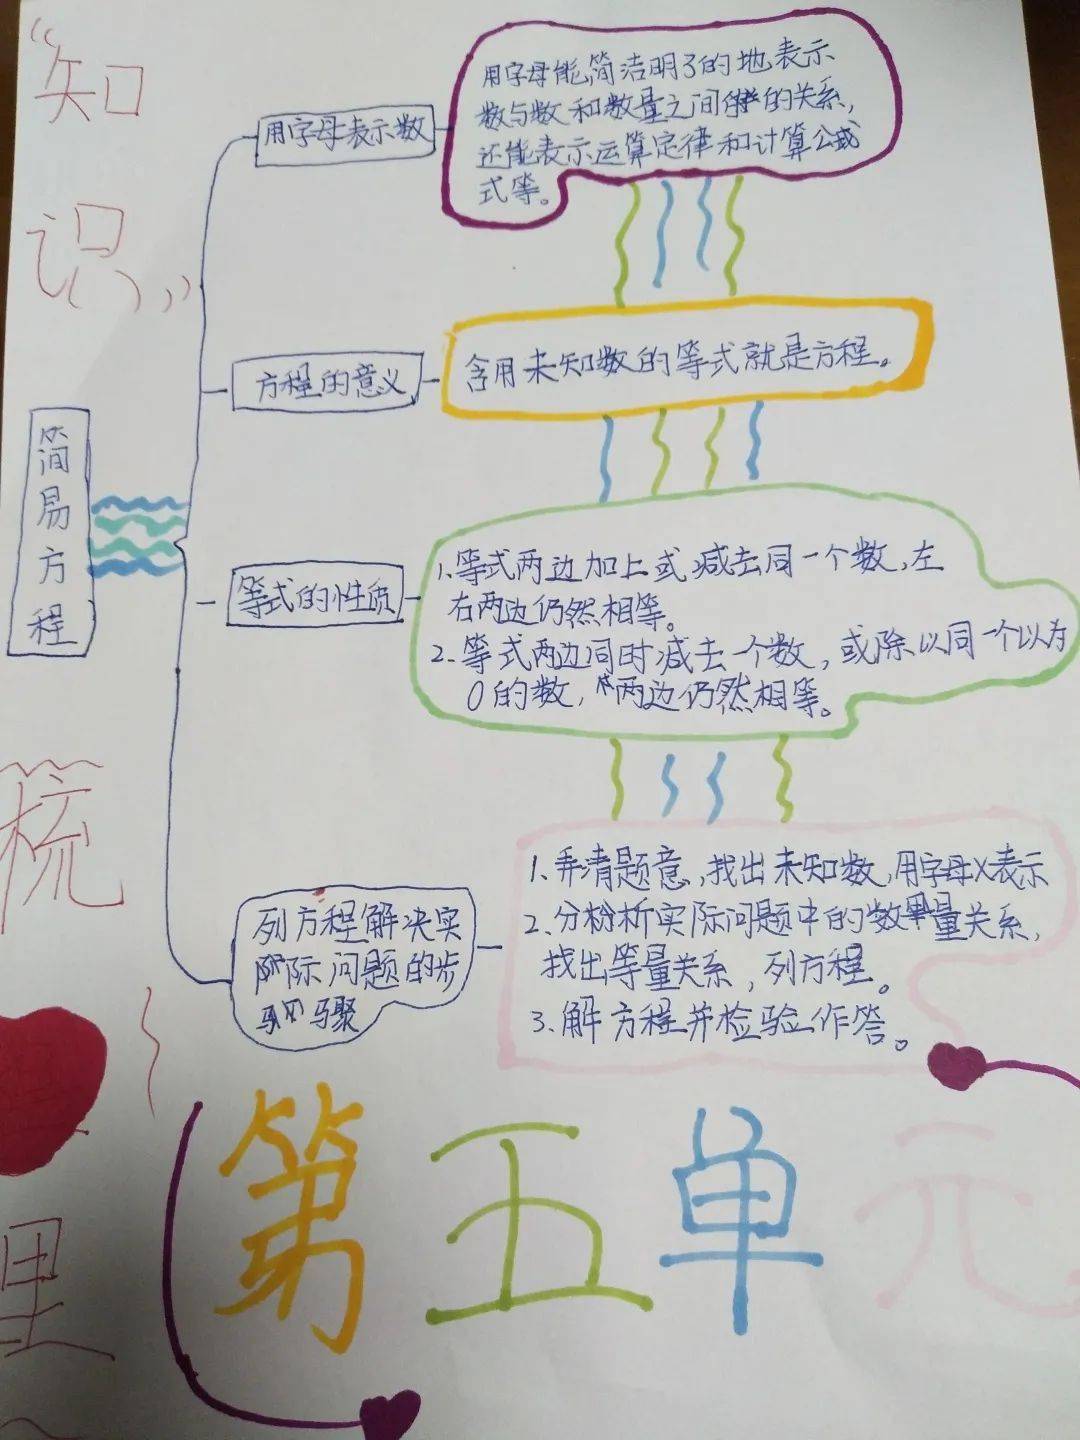 “知
识”
梳
理
简易方程
用字母表示数
用字母能简洁明了的地表示
数与数和数量之间的关系，
还能表示运算定律和计算公式
式等。
方程的意义
含用未知数的等式就是方程。
等式的性质
1.等式两边加上或减去同一个数,左
右两边仍然相等。
2.等式两边同时减去一个数，或除以同一个以为
0的数，两边仍然相等。
列方程解决实
际问题的步
骤
1.弄清题意,找出未知数,用字母X表示
2.分析实际问题中的数量关系，
找出等量关系，列方程。
3.解方程并检验作答。
第五单元